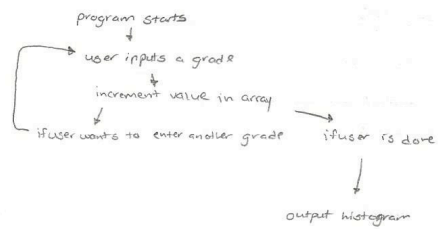 program starts
user inputs a grade
increment value in array
if user wants to enter another grade
if user is done
output histogram